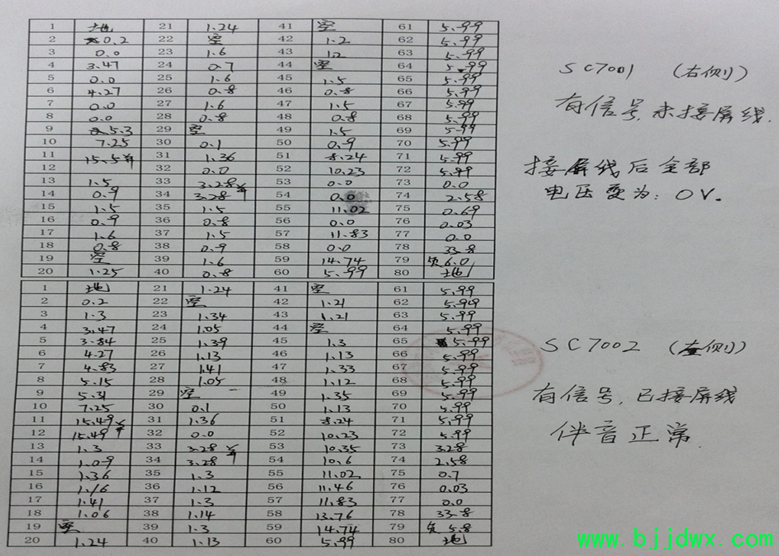 1 地 21 1.24 41 空 61 5.99
2 0.2 22 空 42 1.2 62 5.99
3 0.0 23 1.6 43 1.2 63 5.99
4 3.47 24 0.7 44 空 64 5.99
5 0.0 25 1.6 45 1.5 65 5.99
6 4.27 26 0.8 46 0.8 66 5.99
7 0.0 27 1.6 47 1.5 67 5.99
8 0.0 28 0.8 48 0.8 68 5.99
9 5.3 29 空 49 1.5 69 5.99
10 7.25 30 0.1 50 0.9 70 5.99
11 15.5 31 1.36 51 8.24 71 5.99
12 32 0.0 52 10.23 72 5.99
13 1.5 33 3.28 53 0.0 73 0.0
14 0.9 34 3.28 54 0.0 74 2.58
15 1.5 35 1.5 55 11.02 75 0.69
16 0.9 36 0.8 56 0.0 76 0.03
17 1.6 37 1.5 57 11.83 77 0.0
18 0.8 38 0.9 58 0.0 78 33.8
19 空 39 1.6 59 14.74 79 负6.0
20 1.25 40 0.8 60 5.99 80 地
SC7001 (右侧)
有信号,未接屏线.
接屏线后全部
电压变为: 0V.
1 地 21 1.24 41 空 61 5.99
2 0.2 22 空 42 1.21 62 5.99
3 1.3 23 1.34 43 1.21 63 5.99
4 3.47 24 1.05 44 空 64 5.99
5 3.84 25 1.39 45 1.3 65 5.99
6 4.27 26 1.13 46 1.13 66 5.99
7 4.83 27 1.41 47 1.33 67 5.99
8 5.15 28 1.05 48 1.12 68 5.99
9 5.31 29 空 49 1.35 69 5.99
10 7.25 30 0.1 50 1.13 70 5.99
11 15.49 31 1.36 51 8.24 71 5.99
12 15.49 32 0.0 52 10.23 72 5.99
13 1.3 33 3.28 53 10.35 73 3.28
14 1.09 34 3.28 54 10.6 74 2.58
15 1.36 35 1.3 55 11.02 75 0.7
16 1.16 36 1.12 56 11.46 76 0.03
17 1.41 37 1.3 57 11.83 77 0.0
18 1.06 38 1.14 58 13.76 78 33.8
19 空 39 1.3 59 14.74 79 负5.8
20 1.24 40 1.13 60 5.99 80 地
SC7002 (左侧)
有信号,已接屏线
伴音正常.
www.bjjdwx.com